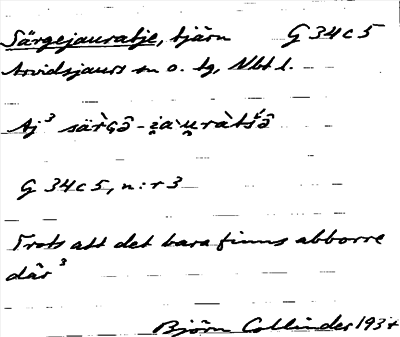 Särgejauratje, tjärn G 34 c 5
Arvidsjaurs sn o. tg, Nbt l.
Aj³
G 34 c 5, n:r 3
Trots att det bara finns abborre
där³
Björn Collinder 193